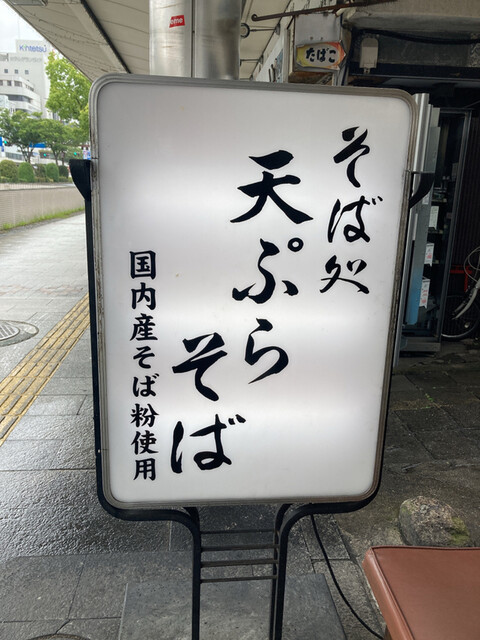 そば処
天ぷら
そば
国内産そば粉使用
たばこ